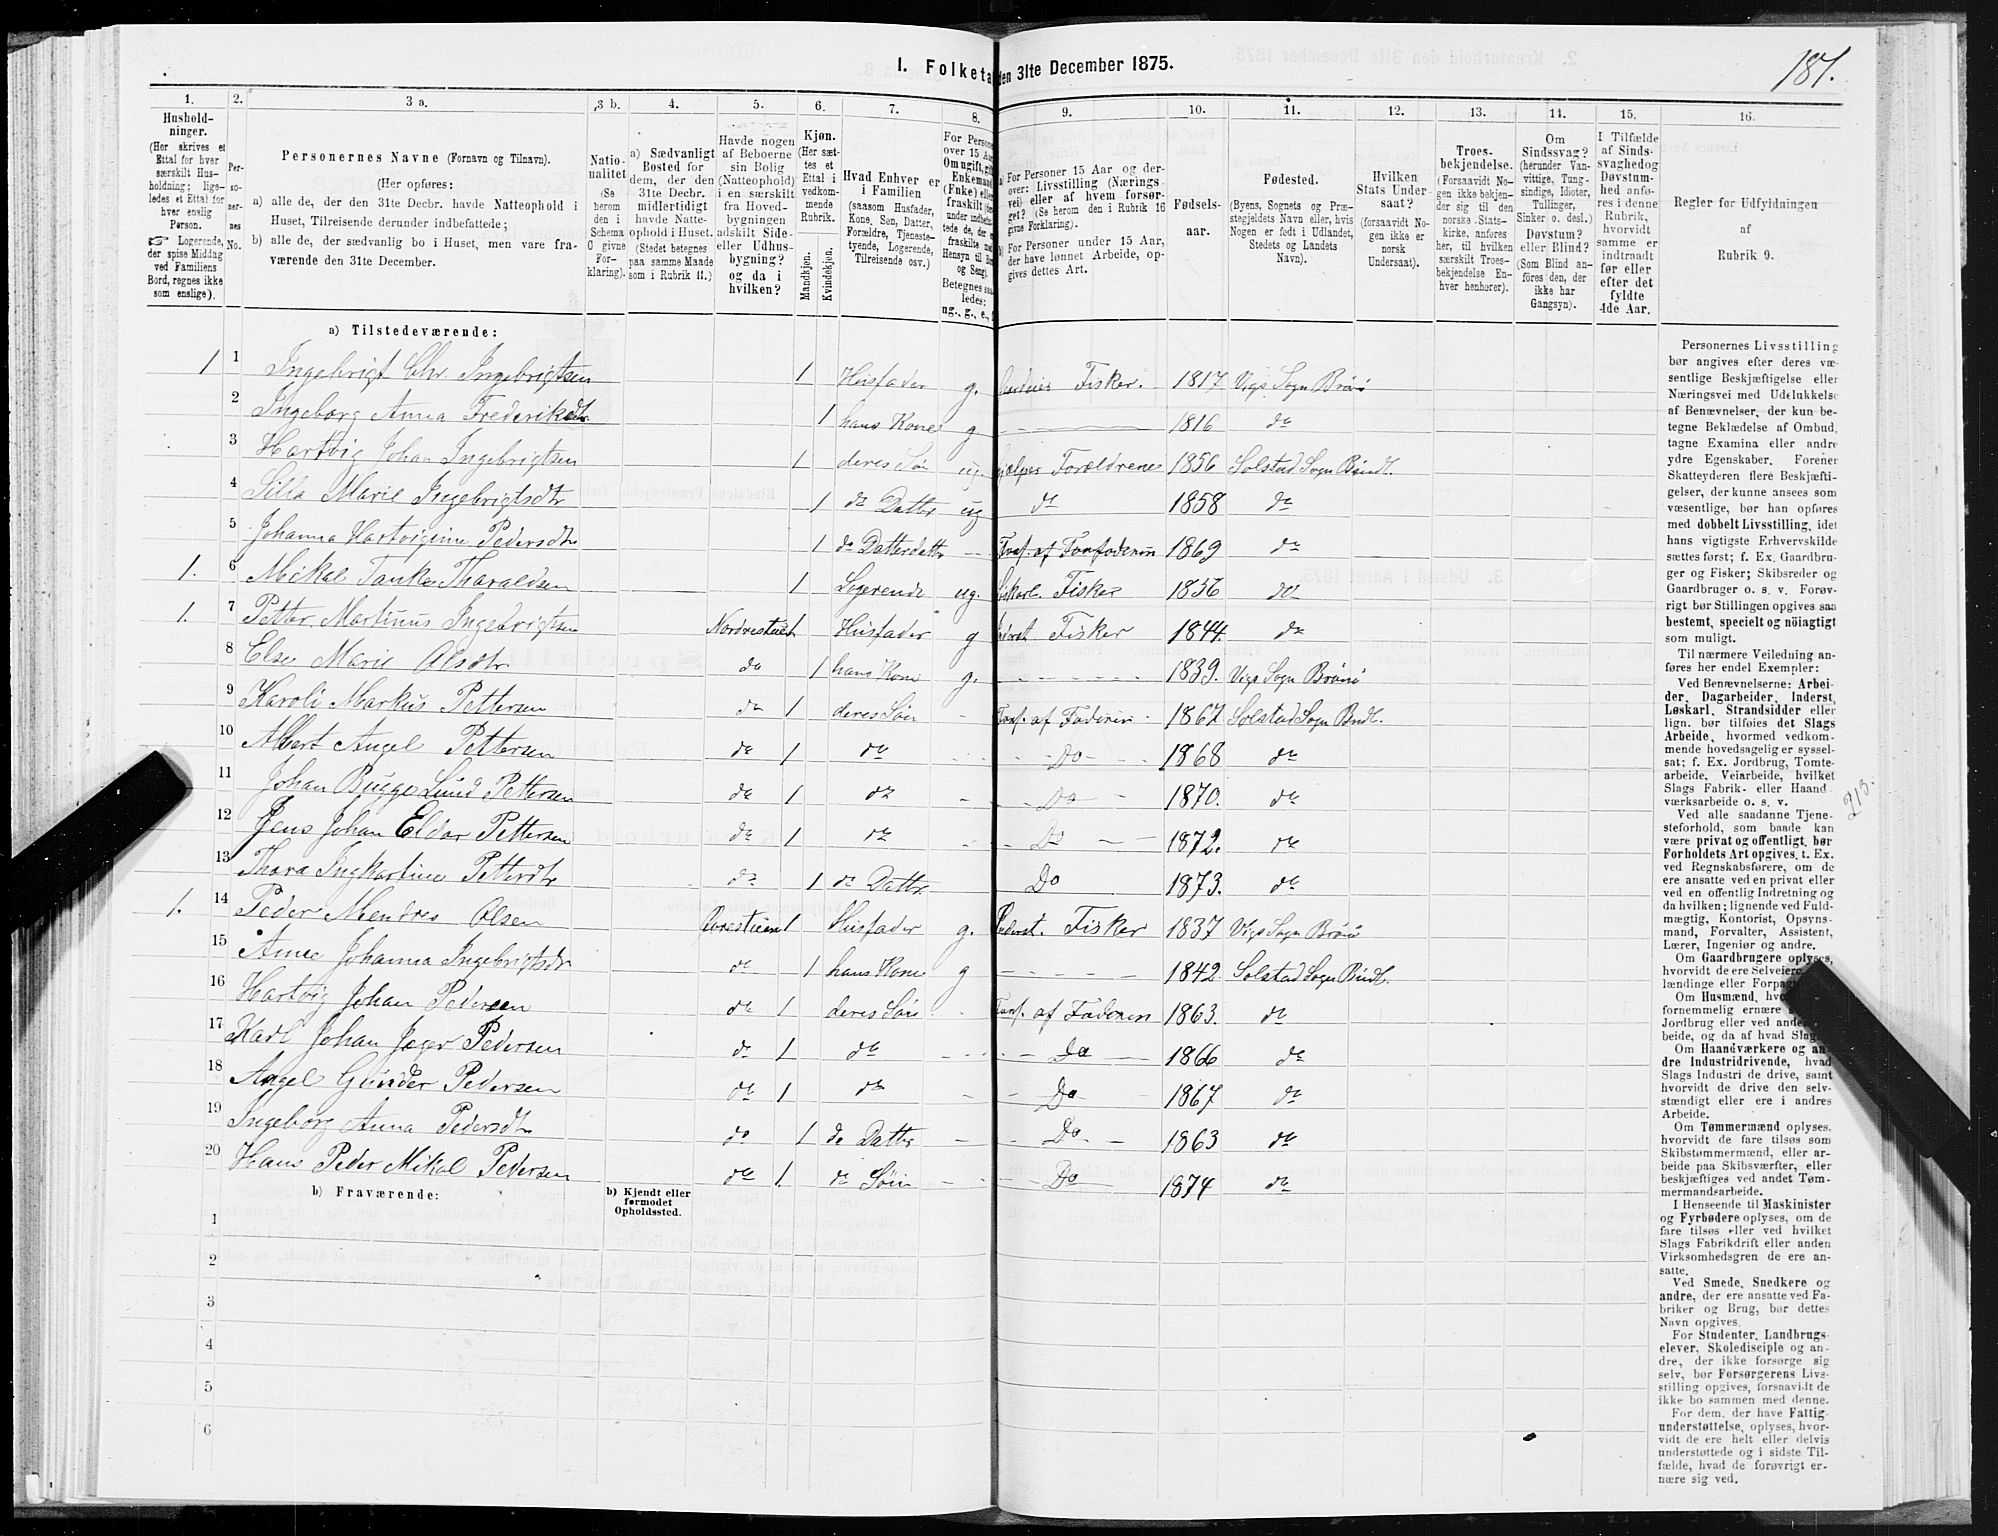 181.
1. Folketa den 31te December 1875.
1. 2. 3 a. 3 b. 4. 5. 6. 7. 8. 9. 10. 11. 12. 13. 14. 15. 16.
Hushold-
ninger.
(Her skrives et
Ettal for hver
særskilt Hus-
holdning; lige-
ledes et Ettal for
hver enslig
Person.
☞ Logerende,
der spise Middag
ved Familiens
Bord, regnes ikke
som enslige).
Per-
so-
ner-
nes
No.
Personernes Navne (Fornavn og Tilnavn).
(Her opføres:
a) alle de, der den 31te Decbr. havde Natteophold i
Huset, Tilreisende derunder indbefattede;
b) alle de, der sædvanlig bo i Huset, men vare fra-
værende den 31te December.
Natio-
nalitet
(Se
herom
den i
Schema
C givne
For-
klaring).
a) Sædvanligt
Bosted for
dem, der den
31te Decbr.
midlertidigt
havde Natte-
ophold i Huset.
(Stedet betegnes
paa samme Maade
som i Rubrik 11.)
Havde nogen
af Beboerne
sin Bolig
(Natteophold)
i en særskilt
fra Hoved-
bygningen
adskilt Side-
eller Udhus-
bygning?
og da i
hvilken?
Kjøn.
(Her sæt-
tes et
Ettal i
vedkom-
mende
Rubrik.
Mandkjøn.
Kvindekjøn.
Hvad Enhver er
i Familien
(saasom Husfader,
Kone, Søn, Datter,
Forældre, Tjeneste-
tyende, Logerende,
Tilreisende osv.)
For Persone
over 15 Aar
Om ugift, gift
Enkemand
(Enke) eller
fraskilt
a) For Personer 15 Aar og der-
over: Livsstilling (Nærings-
vei) eller af hvem forsør-
get? (Se herom den i Rubrik 16
givne Forklaring).
b) For Personer under 15 Aar,
der have lønnet Arbeide, op-
gives dettes Art.
Fødsels-
aar.
Fødested.
(Byens, Sognets og Præ-
stegjeldets Navn eller, hvis
Nogen er født i Udlandet,
Stedets og Landets
Navn).
Hvilken
Stats Under-
saat?
(forsaavidt No-
gen ikke er
norsk
Undersaat).
Troes-
bekjendelse.
(Forsaavidt No-
gen ikke bekjen-
der sig til den
norske Stats-
kirke, anføres
her, til hvilken
særskilt Troes-
bekjendelse En-
hver henhører).
Om
Sindssvag?
(herunder Van-
vittige, Tung-
sindige, Idioter,
Tullinger,
Sinker o. desl.)
Døvstum?
eller Blind?
(Som Blind an-
føres den, der
ikke har
Gangsyn).
I Tilfælde
af Sinds-
svaghed og
Døvstum-
hed anfø-
res i denne
Rubrik,
hvorvidt
samme er
indtraadt
før eller
efter det
fyldte
4de Aar.
Regler for Udfyldningen
af
Rubrik 9.
a) Tilstedeværende:
1 1 Ingebrigt Chr. Ingebrigtsen 1 Husfader g. Fisker. 1817 Vigs Sogn Brønø
2 Ingeborg Anna Frederiksdtr 1 hans Kone g 1816 do
3 Hartvig Johan Ingebrigtsen 1 deres Søn ug. Forældrene 1856 Solstad Sogn Bindl.
4 Silla Marie Ingebrigtsdtr 1 do Datter ug do 1858 do
5 Johanna Hartvigine Pedersdtr 1 do Datterdatter — Fors. af 1869 do
1. 6 Mikal Tanke Tharaldsen 1 Logerende ug. Løskarl. Fisker 1856 do
1. 7 Petter Martinus Ingebrigtsen Nordrestuen 1 Husfader g Inderst Fisker 1844. do
8 Else Marie Olsdtr do 1 hans Kone g. 1839. Vigs Sogn Brønø
9 Karoli Markus Pettersen do 1 deres Søn - Fors. af Faderen 1867 Solstad Sogn Bindl.
10 Albert Angel Pettersen do 1 do Do 1868 do
11 Johan Bugge Lund Pettersen do 1 do Do 1870. do
12 Jens Johan Eldar Pettersen do 1 do Do 1872. do
13 Thora Ingkartine Pettersdtr do 1 do Datter Do 1873. do
1. 14 Peder Mendres Olsen 1 Husfader g. Inderst. Fisker 1837 Vigs Sogn Brønø
15 Anne Johanna Ingebrigtsdtr do 1 hans Kone g 1842 Solstad Sogn Bindl.
16 Hartvig Johan Pedersen do 1 deres Søn - Fors. af Faderen 1863. do
17 Karl Johan Jæger Pedersen do 1 do Do 1866 do
18 Angel Gunder Pedersen do 1 do Do 1867 do
19 Ingeborg Anna Pedersdtr do 1 do Datter Do 1863 do
20 Hans Peder Mikal Pedersen do 1. do Søn Do 1874 do
b) Fraværende:
b) Kjendt eller
formodet
Opholdssted.
1
2
3
4
5
6
Personernes Livsstilling
bør angives efter deres væ-
sentlige Beskjæftigelse eller
Næringsvei med Udelukkelse
af Benævnelser, der kun be-
tegne Beklædelse af Ombud,
tagne Examina eller andre
ydre Egenskaber. Forener
Skatteyderen flere Beskjæfti-
gelser, der kunne ansees som
væsentlige, bør han opføres
med dobbelt Livsstilling, idet
hans vigtigste Erhvervskilde
sættes først; f. Ex. Gaardbru-
ger og Fisker; Skibsreder og
Gaardbruger o. s. v. Forøv-
rigt bør Stillingen opgives saa
bestemt, specielt og nöiagtigt
som muligt.
Til nærmere Veiledning an-
føres her endel Exempler:
Ved Benævnelserne: Arbei-
der, Dagarbeider, Inderst,
Løskarl, Strandsidder eller
lign. bør tilføies det Slags
Arbeide, hvormed vedkom-
mende hovedsagelig er syssel-
sat; f. Ex. Jordbrug, Tomte-
arbeide, Veiarbeide, hvilket
Slags Fabrik- eller Haand-
værksarbeide o. s. v.
Ved alle saadanne Tjene-
steforhold, som baade kan
være privat og offentligt, bør
Forholdets Art opgives, t. Ex.
ved Regnskabsførere, om de
ere ansatte ved en privat eller
ved en offentlig Indretning og
da hvilken; lignende ved Fuld-
mægtig, Kontorist, Opsyns-
mand, Forvalter, Assistent,
Lærer, Ingeniør og andre.
Om Gaardbrugere oplyses,
hvorvidt de ere Selveiere,
lændinge eller Forpag
Om Husmænd, hvo
fornemmelig ernære
Jordbrug eller ved ande
beide, og da af hvad Slag
Om Haandværkere og an-
dre Industridrivende, hvad
Slags Industri de drive, samt
hvorvidt de drive den selv-
stændigt eller ere i andres
Arbeide.
Om Tømmermænd oplyses,
hvorvidt de fare tilsøs som
Skibstømmermænd, eller ar-
beide paa Skibsværfter, eller
beskjæftiges ved andet Tøm-
mermandsarbeide.
I Henseende til Maskinister
og Fyrbødere oplyses, om de
fare tilsøs eller ved hvilket
Slags Fabrikdrift eller anden
Virksomhedsgren de ere an-
satte.
Ved Smede, Snedkere og
andre, der ere ansatte ved Fa-
briker og Brug, bør dettes
Navn opgives.
For Studenter, Landbrugs-
elever, Skoledisciple og an-
dre, der ikke forsørge sig
selv, bør Forsørgerens Livs-
stilling opgives, forsaavidt de
ikke bo sammen med denne.
For dem, der have Fattig-
understøttelse, oplyses, hvor-
vidt de ere helt eller delvis
understøttede og i sidste Til-
fælde, hvad de forøvrigt er-
nære sig ved.
213.